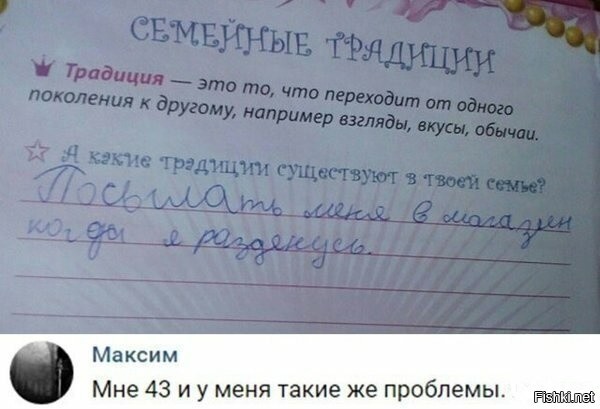 Fishki.net
СЕМЕЙНЫЕ ТРАДИЦИИ
Традиция — это то, что переходит от одного
поколения к другому, например взгляды, вкусы, обычаи.
А какие традиции существуют в твоей семье?
Посылать меня в магазин
когда я разденусь.
Максим
Мне 43 и у меня такие же проблемы.
Fishki.net